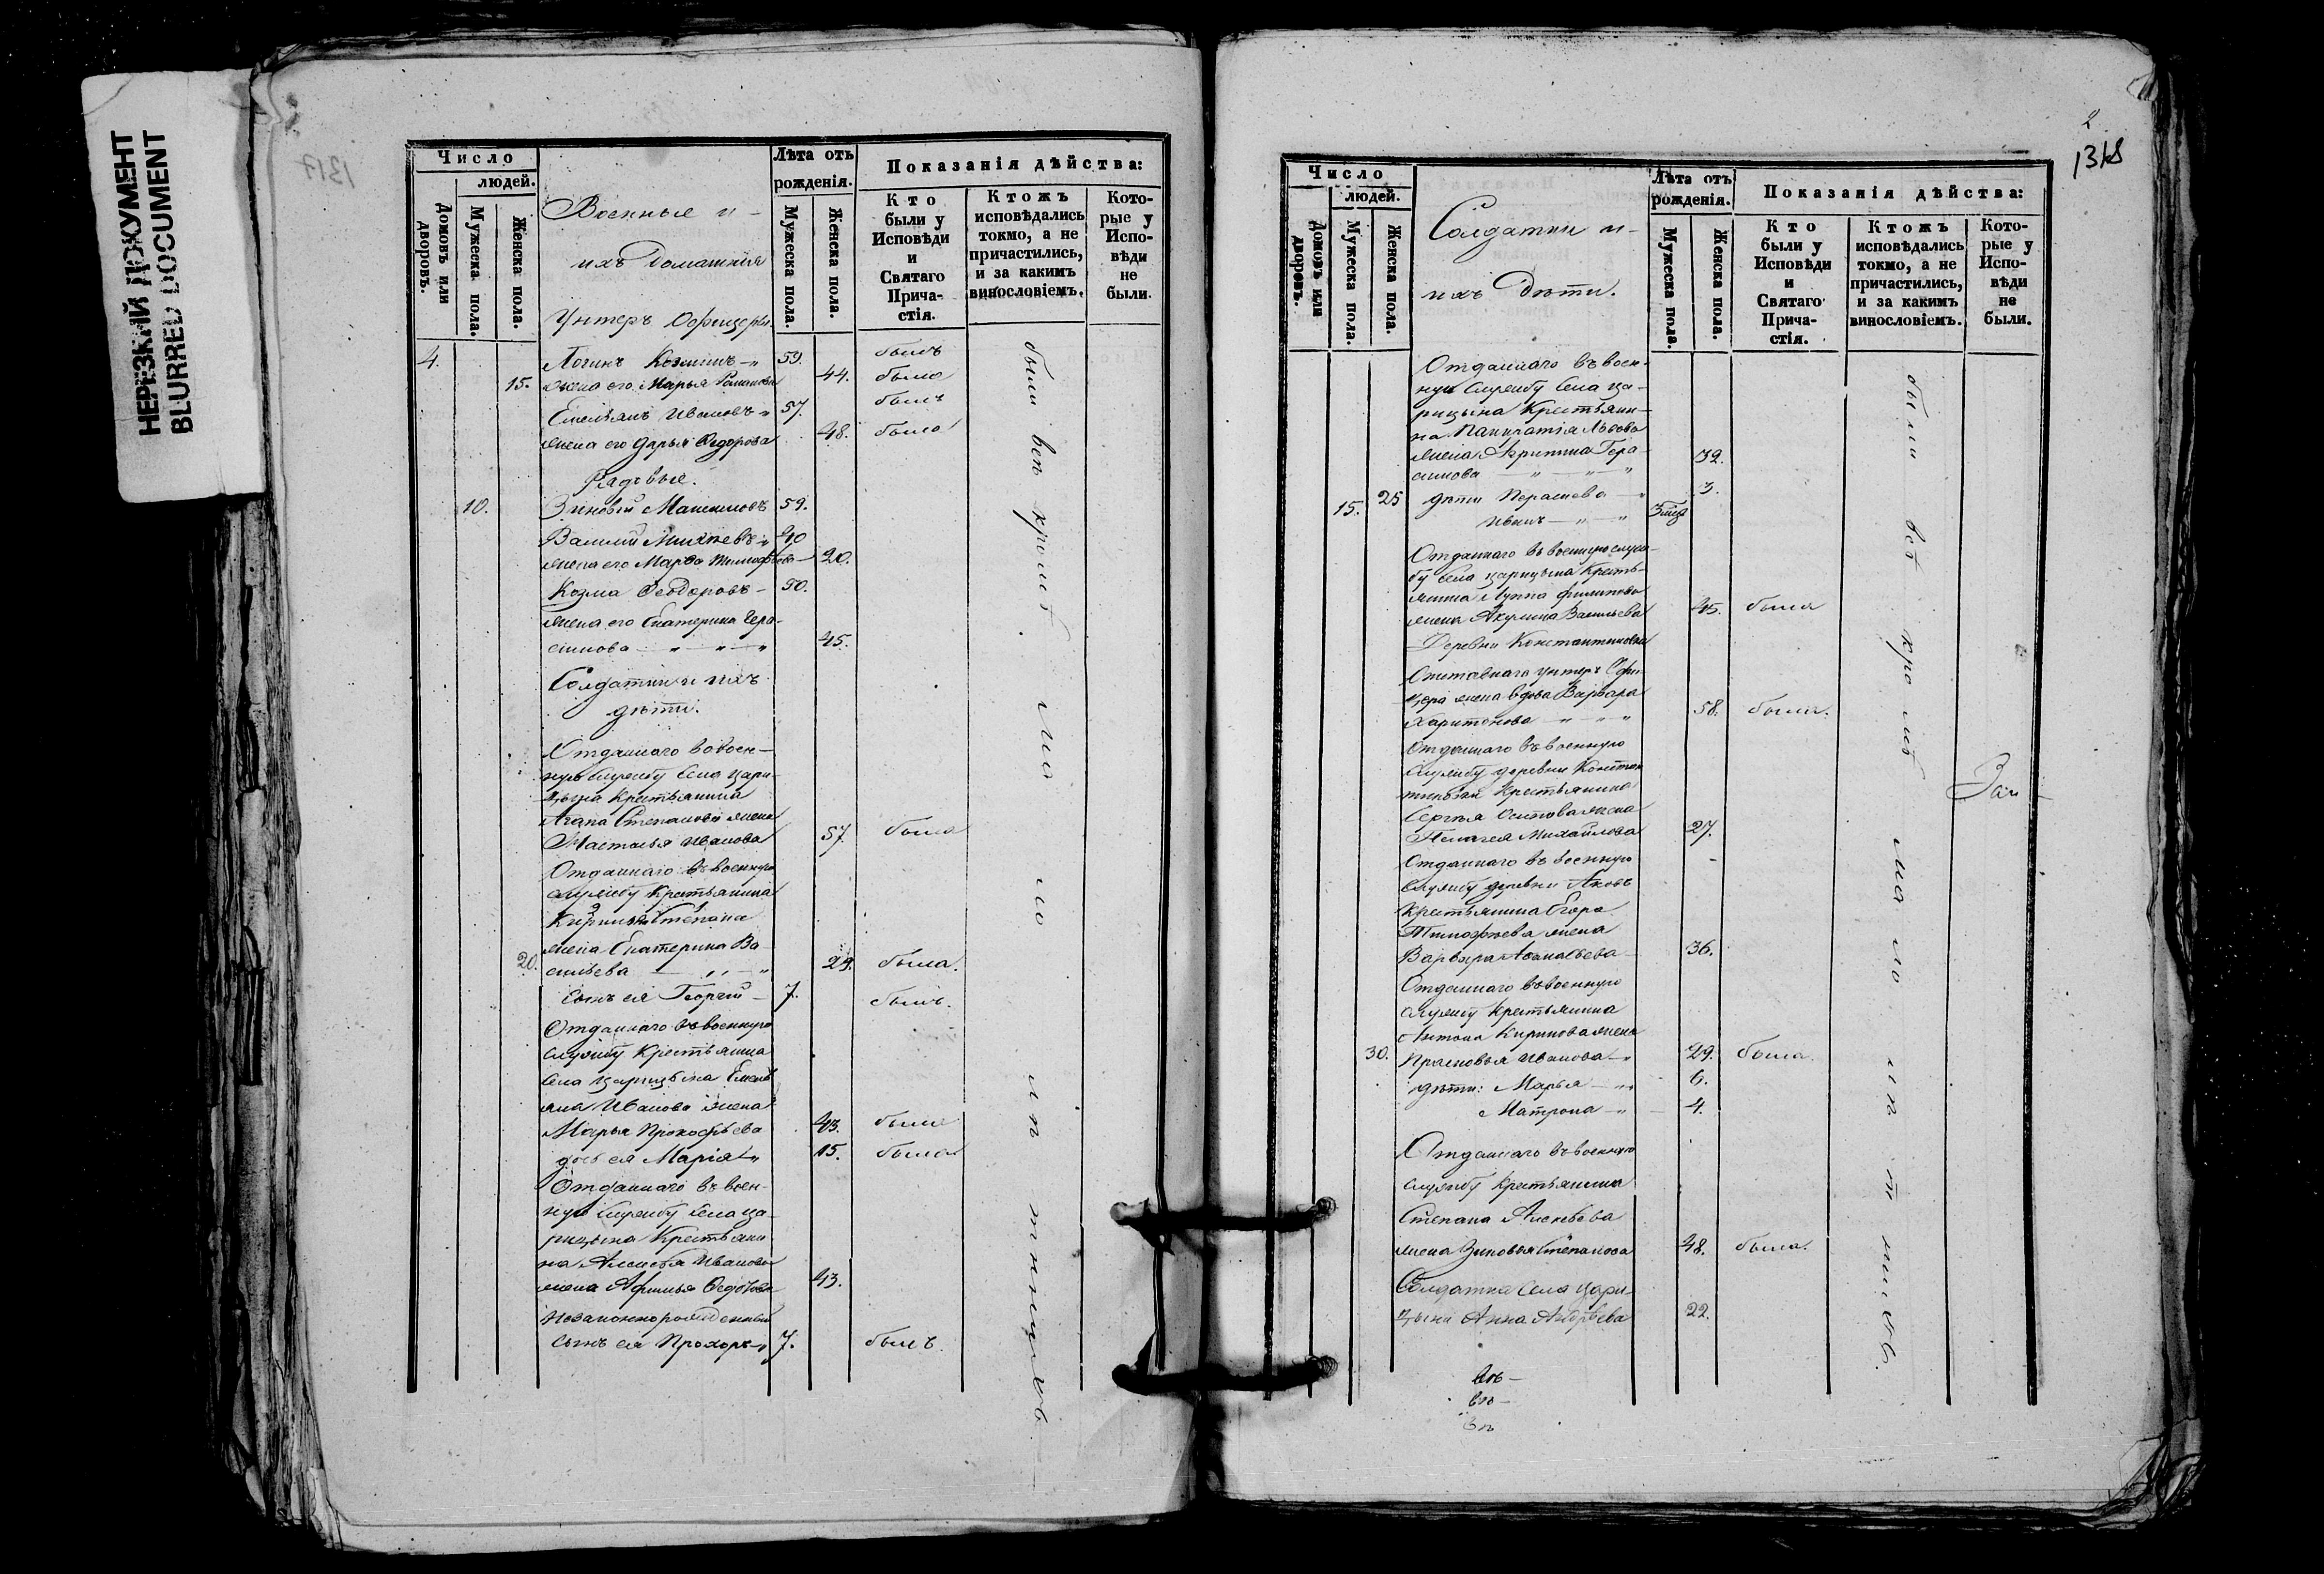 НЕРЕЗКИЙ ДОКУМЕНТ
BLURRED DOCUMENT
1317
Число
людей.
Домовъ или дворовъ.
Мужеска пола.
Женска пола.
Военные и
ихъ домашнія
Унтеръ Офицеры.
Лѣта отъ рожденія.
Мужеска пола.
Женска пола.
Показанія дѣйства:
Кто были у Исповѣди и Святаго Прича- стія.
Ктожъ исповѣдались токмо, а не причастились, и за какимъ винословіемъ.
Кото- рые у Испо- вѣди не были.
4. Логинъ Козминъ 59. былъ
15. жена его Марья Романова 44. была
Емельянъ Ивановъ 57. былъ
жена его Дарья Федорова 48. была
Рядовые.
10. Зиновей Максимовъ 59.
Василий Михѣевъ 40
жена его Марѳа Тимофѣева 20.
Козма Ѳеодоровъ 50.
жена его Екатерина Гера-
симова 45.
Солдатки и ихъ
дѣти.
Отданнаго в воен-
ную службу села Цари-
цына Крестьянина
Агапа Степанова жена
Настасья Иванова 57. была
Отданнаго въ военную
службу Крестьянина
Степана
жена Екатерина Ва-
20. сильева 29. была.
сынъ ея Георгій 7. былъ.
Отданнаго въ военную
службу Крестьянина
села Царицына Емель
яна Иванова жена
Марья Прокофьева 43. была
дочь ея Марія 15. была
Отданнаго въ воен-
ную службу села Ца-
рицына Крестьяни
на Алексѣя Иванова
жена Афимья Федотова 43.
Незаконнорожденный
сынъ ея Прохоръ 7. былъ.
были всѣ кромѣ
2
1318
Число
людей.
Домовъ или дворовъ.
Мужеска пола.
Женска пола.
Солдатки и
ихъ дѣти.
Лѣта отъ рожденія.
Мужеска пола.
Женска пола.
Показанія дѣйства:
Кто были у Исповѣди и Святаго Прича- стія.
Ктожъ исповѣдались токмо, а не причастились, и за какимъ винословіемъ.
Кото- рые у Испо- вѣди не были.
Отданнаго въ воен-
ную службу села Ца-
рицына Крестьяни-
на Панкратія Львова
жена Акрипина Гера-
симова 32.
25 дѣти 3.
15. Иванъ
Отданнаго въ военную служ-
бу села Царицына Кресть-
янина Луппа Филипова
жена Акулина Васильева 45. была
Деревни Константиновки
Отставнаго унтеръ Офи-
цера жена вдова Варвара
Харитонова 58. была.
Отданнаго въ военную
службу деревни Констан
тиновки Крестьянина
Сергѣя Осипова жена
Пелагея Михайлова 27.
Отданнаго въ военную
службу деревни
Крестьянина Егора
Тимофѣева жена
Варвара 36.
Отданнаго въ военную
службу Крестьянина
Антона жена
30. Прасковья Иванова 29. была.
дѣти: Марья 6.
Матрона 4.
Отданнаго въ военную
службу Крестьянина
Степана Алексѣева
жена Зиновья Степанова 48. была.
Солдатка села Цари-
цына Анна Андрѣева 22.
были всѣ кромѣ